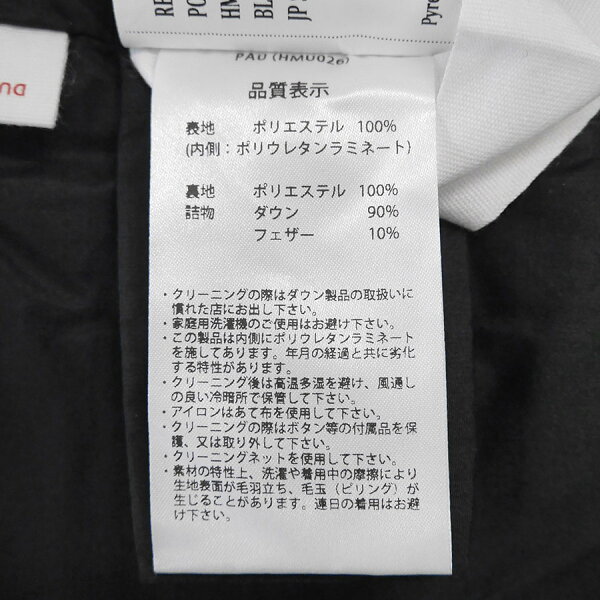 RE
PO
HM
BL
JP
Pyre
una
PAU (HMU026)
品質表示
表地 ポリエステル 100%
(内側：ポリウレタンラミネート)
裏地 ポリエステル 100%
詰物 ダウン 90%
フェザー 10%
・クリーニングの際はダウン製品の取扱いに
慣れた店にお出し下さい。
・家庭用洗濯機のご使用はお避け下さい。
・この製品は内側にポリウレタンラミネート
を施してあります。年月の経過と共に劣化
する特性があります。
・クリーニング後は高温多湿を避け、風通し
の良い冷暗所で保管して下さい。
・アイロンはあて布を使用して下さい。
・クリーニングの際はボタン等の付属品を保
護、又は取り外して下さい。
・クリーニングネットを使用して下さい。
・素材の特性上、洗濯や着用中の摩擦により
生地表面が毛羽立ち、毛玉（ピリング）が
生じることがあります。連日の着用はお避
け下さい。